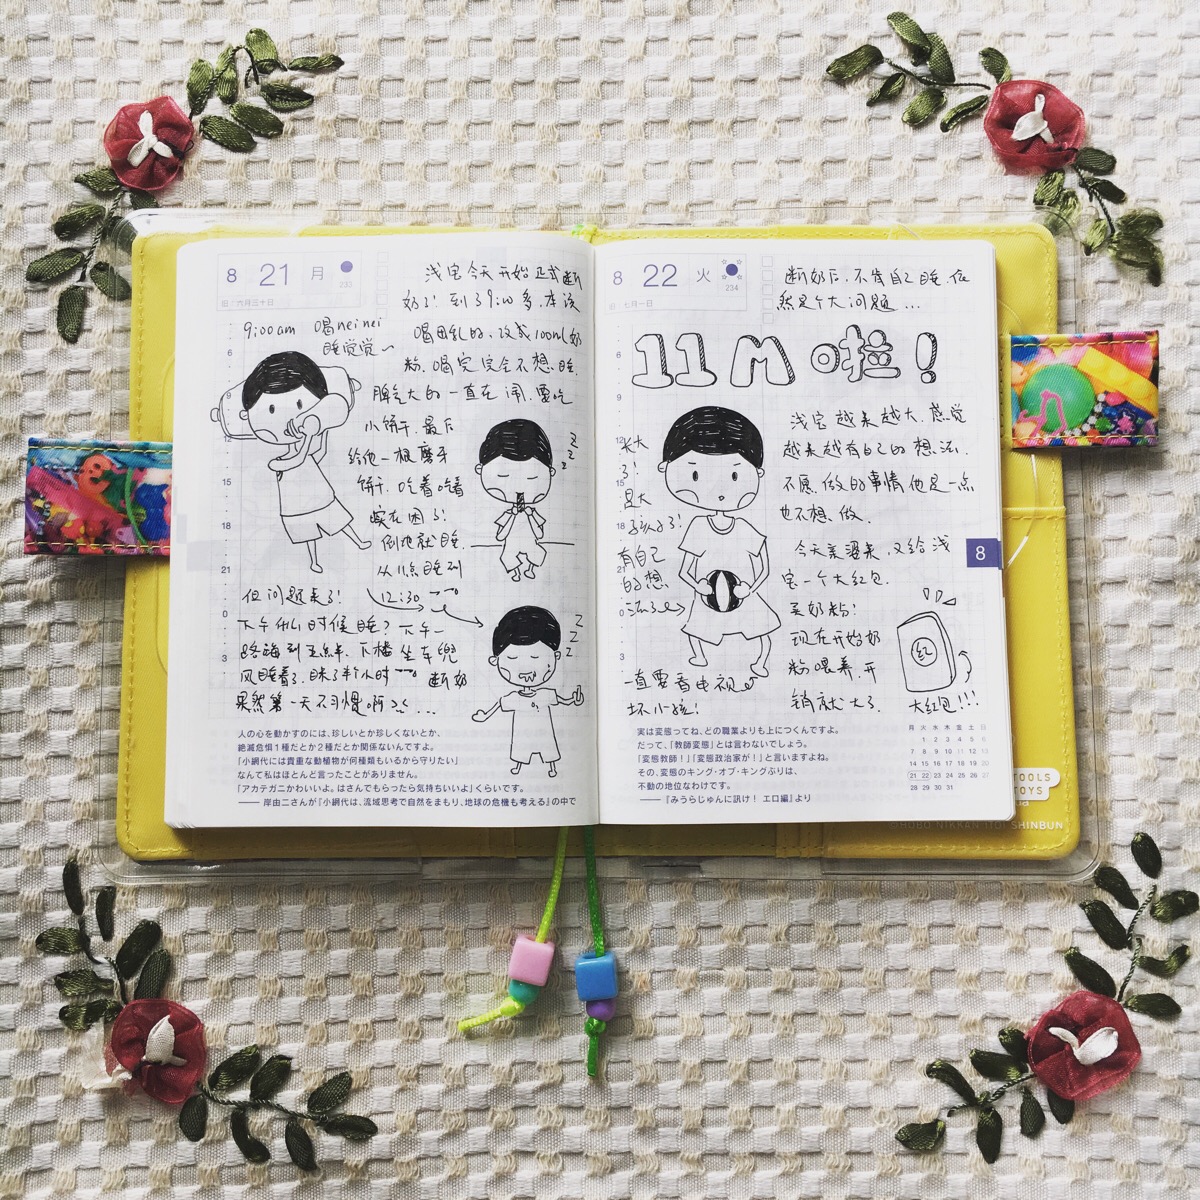 8 21 月
233
旧:六月三十日
浅宝今天开始正式断
奶了!到了9:00多,本该
喝母乳的,改成100ml奶
粉,喝完完全不想睡,
脾气大的一直在闹,要吃
小饼干,最后
给他一根磨牙
饼干,吃着吃着
实在困了!
倒地就睡,
从11点睡到
12:30
9:00am 喝nei nei
睡觉觉~
z z z
6
9
12
15
18
21
0
3
但问题来了!
下午什么时候睡?下午一
路嗨到五点半,下楼坐车兜
风睡着了,眯了半个小时
果然第一天不习惯啊 ...
断奶
z z z
人の心を動かすのには、珍しいとか珍しくないとか、
絶滅危惧1種だとか2種だとか関係ないんですよ。
「小網代には貴重な動植物が何種類もいるから守りたい」
なんて私はほとんど言ったことがありません。
「アカテガニかわいいよ。はさんでもらったら気持ちいいよ」くらいです。
── 岸由二さんが『小網代は、流域思考で自然をまもり、地球の危機も考える』の中で
8 22 火
234
旧:七月一日
断奶后,不肯自己睡,依
然是个大问题...
11M啦!
6
9
12
15
18
21
0
3
长大
了!
是大
孩子了!
有自己
的想
法了
浅宝越来越大,感觉
越来越有自己的想法,
不愿做的事情他是一点
也不想做。
今天亲婆来,又给浅
宝一个大红包,
买奶粉!
现在开始奶
粉喂养,开
销就大了
红
大红包!!!
一直要看电视
坏小孩!
8
実は変態ってね、どの職業よりも上につくんですよ。
だって、「教師変態」とは言わないでしょう。
「変態教師!」「変態政治家が!」と言いますよね。
その、変態のキング・オブ・キングぶりは、
不動の地位なわけです。
── 『みうらじゅんに訊け! エロ編』より
月 火 水 木 金 土 日
1 2 3 4 5 6
7 8 9 10 11 12 13
14 15 16 17 18 19 20
21 22 23 24 25 26 27
28 29 30 31
TOOLS
TOYS
HOBO NIKKAN ITOI SHINBUN